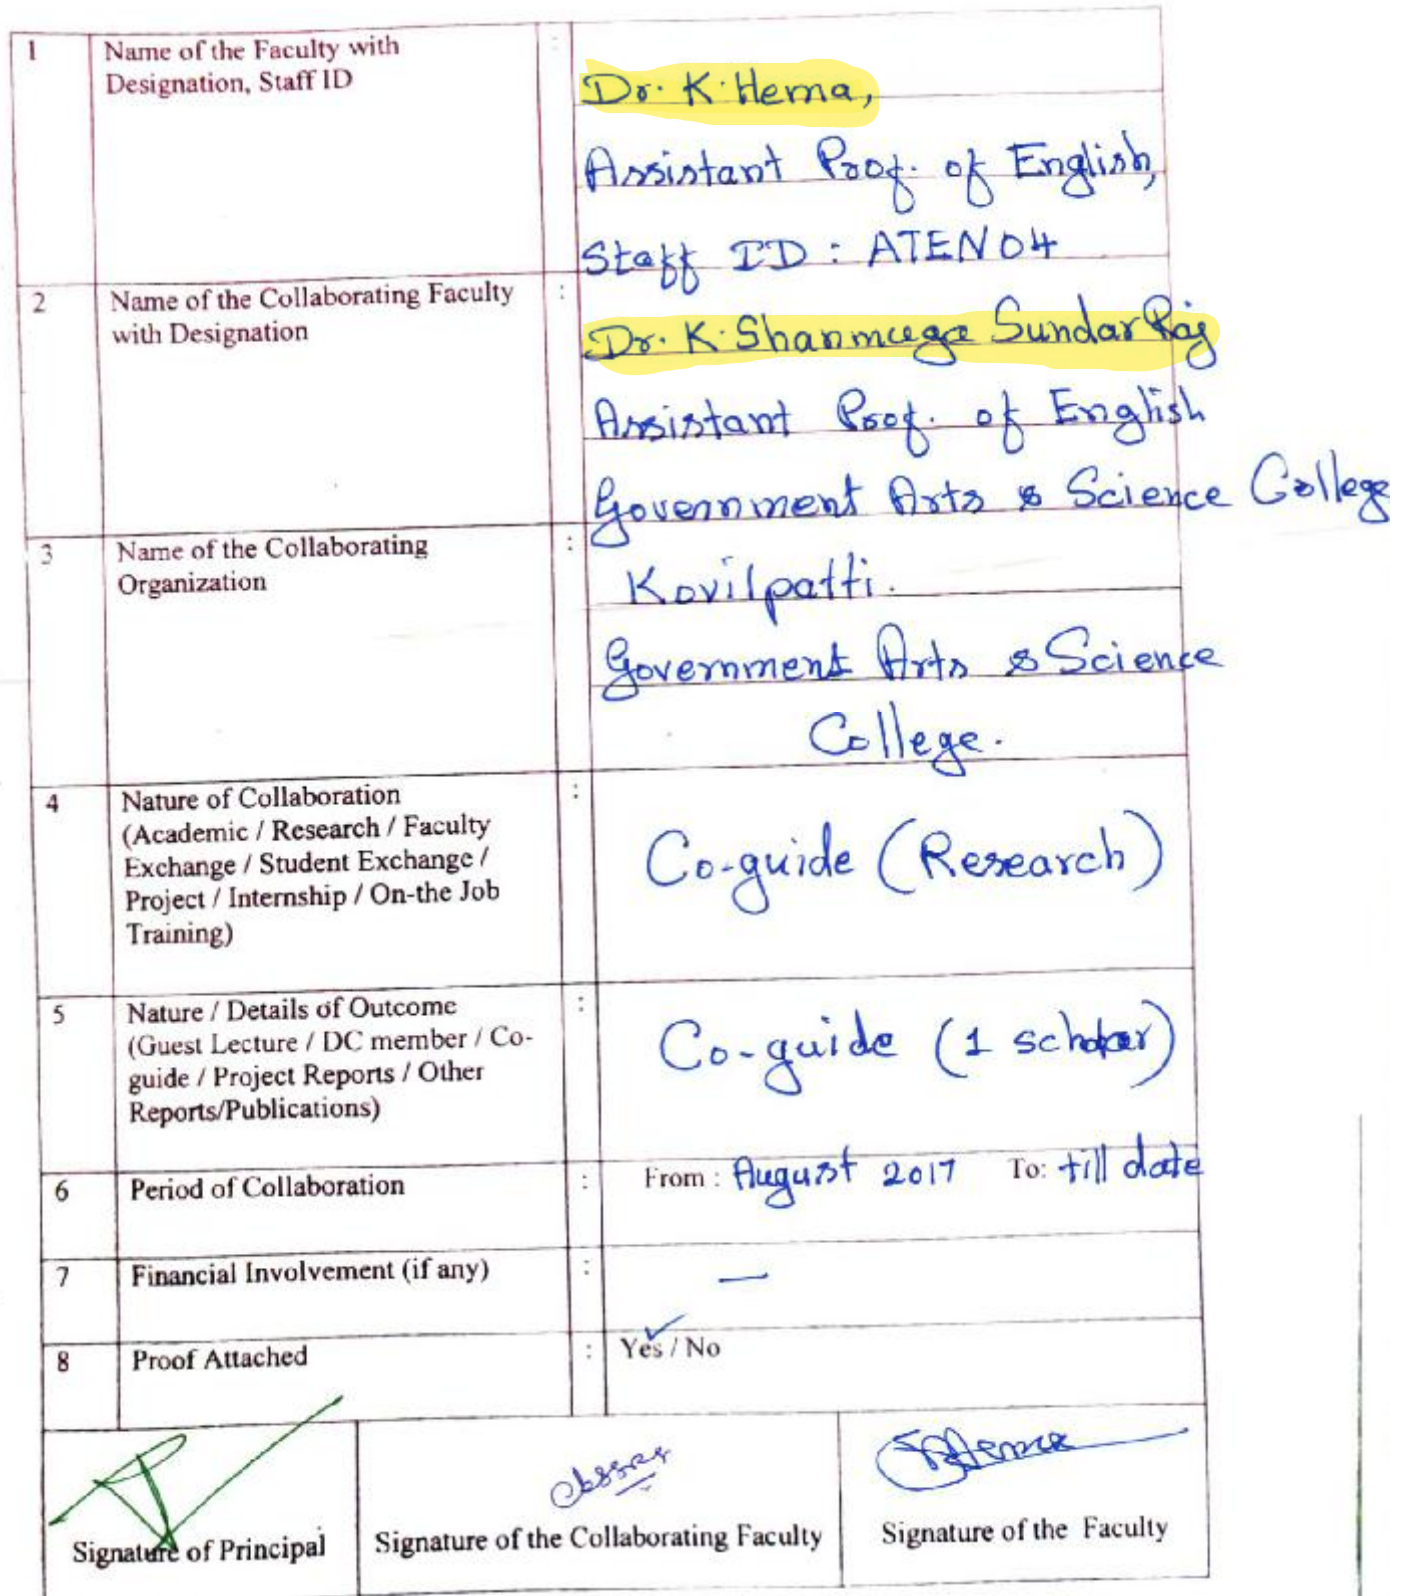 1 Name of the Faculty with : 
Designation, Staff ID
Dr. K. Hema,
Assistant Prof. of English,
Staff ID : ATEN04
2 Name of the Collaborating Faculty :
with Designation
Dr. K. Shanmuga Sundar Raj
Assistant Prof. of English
Government Arts & Science College
3 Name of the Collaborating :
Organization
Kovilpatti.
Government Arts & Science
College.
4 Nature of Collaboration :
(Academic / Research / Faculty
Exchange / Student Exchange /
Project / Internship / On-the Job
Training)
Co-guide (Research)
5 Nature / Details of Outcome :
(Guest Lecture / DC member / Co-
guide / Project Reports / Other
Reports/Publications)
Co-guide (1 scholar)
6 Period of Collaboration : From : August 2017 To: till date
7 Financial Involvement (if any) : —
8 Proof Attached : Yes / No
Signature of Principal
Signature of the Collaborating Faculty
Signature of the Faculty